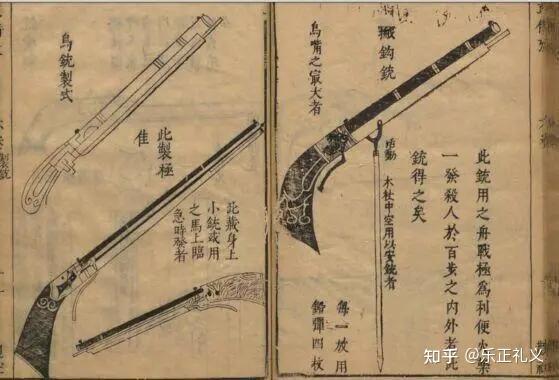 鈎銃
鳥嘴之最大者
此銃用之舟戰極為利便火藥
一發殺人於百步之內外者此
銃得之矣
活動
木杖中空用以安銃者
每一放用
鉛彈四枚
鳥銃製式
此製極
佳
此藏身上
小銃或用
之馬上臨
急時發者
製銃
知乎 @乐正礼义